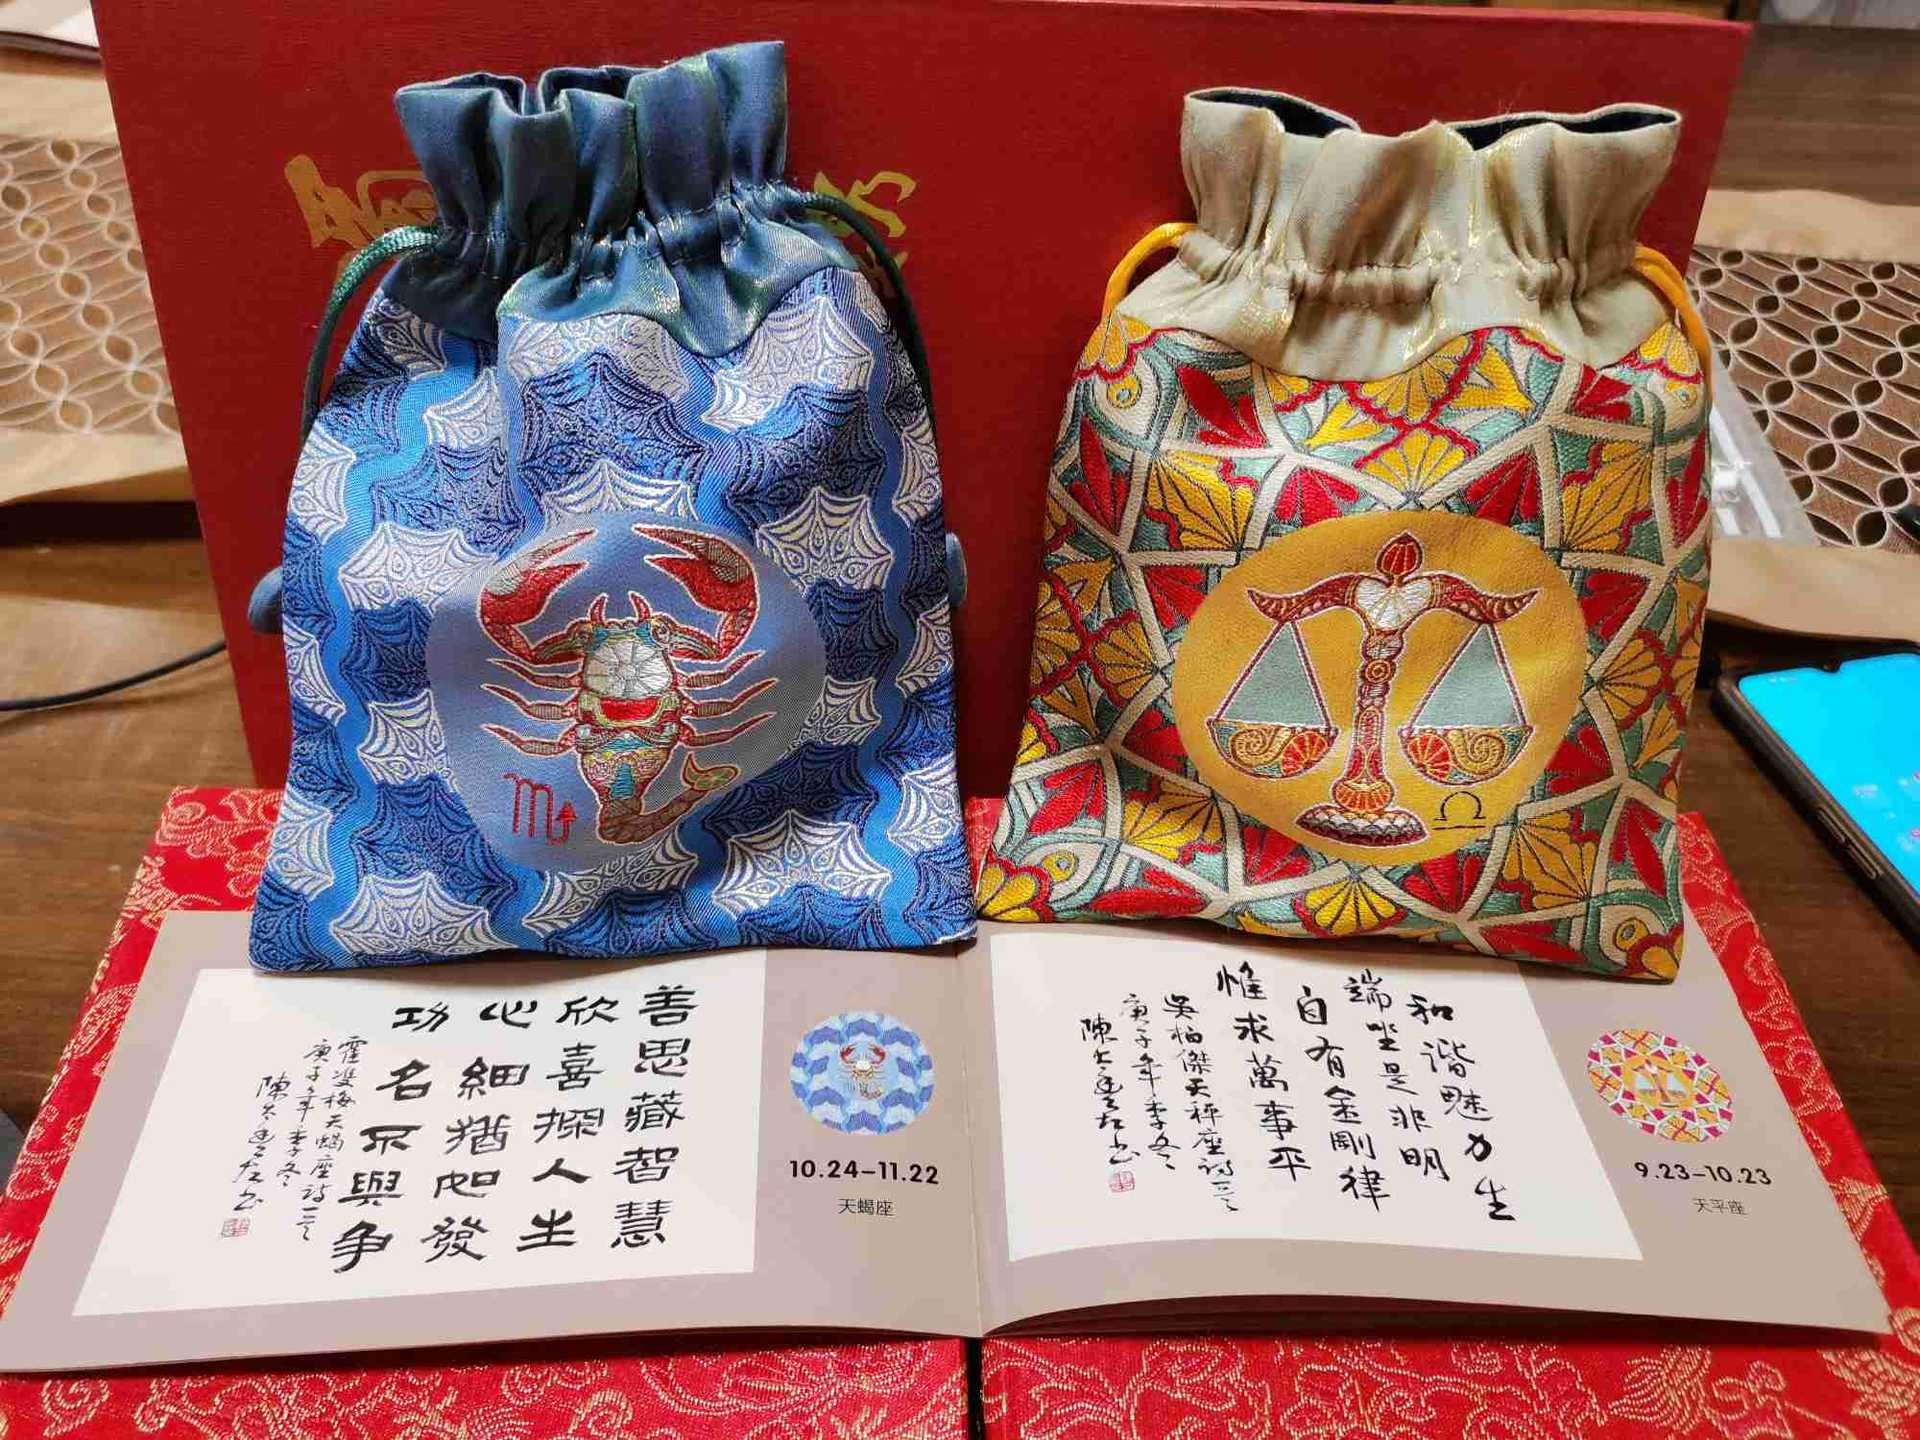 善思藏智慧
欣喜探人生
心細猶如發
功名不與争
霍雙梅天蝎座詩一首
庚子年季冬
10.24–11.22
天蝎座
和谐魅力生
端坐是非明
自有金剛律
惟求萬事平
吳柏傑天秤座詩一首
庚子年季冬
9.23–10.23
天平座